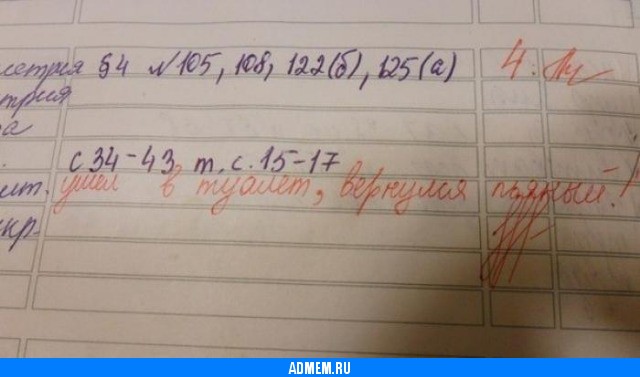 метрия §4 №105, 108, 122(б), 125(а) 4.
трия
а
с 34-43 т. с. 15-17
ит. ушел в туалет, вернулся пьяный!
кр.
ADMEM.RU